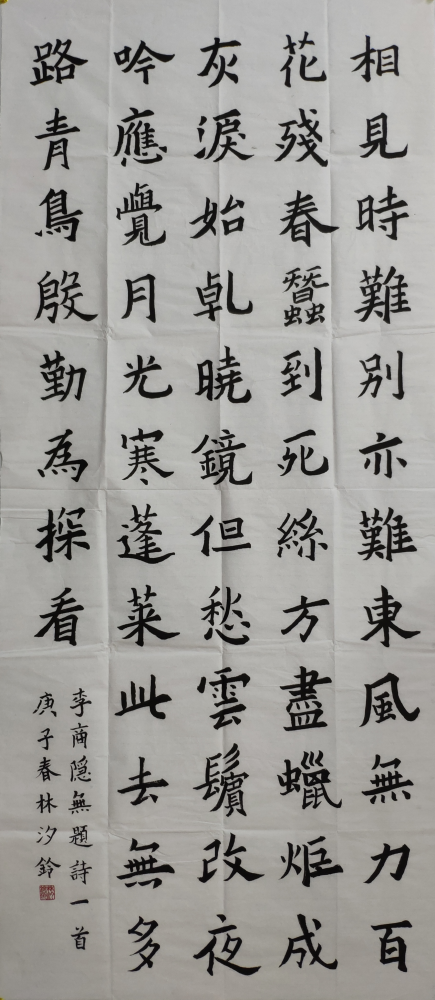 相見時難別亦難東風無力百
花殘春蠶到死絲方盡蠟炬成
灰淚始乹曉鏡但愁雲鬢改夜
吟應覺月光寒蓬萊此去無多
路青鳥殷勤為探看
李商隐無題詩一首
庚子春林汐鈴